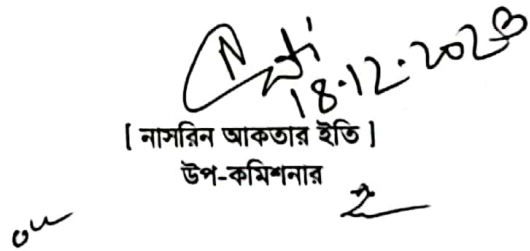 18.12.2023
[ নাসরিন আকতার ইতি ]
উপ-কমিশনার